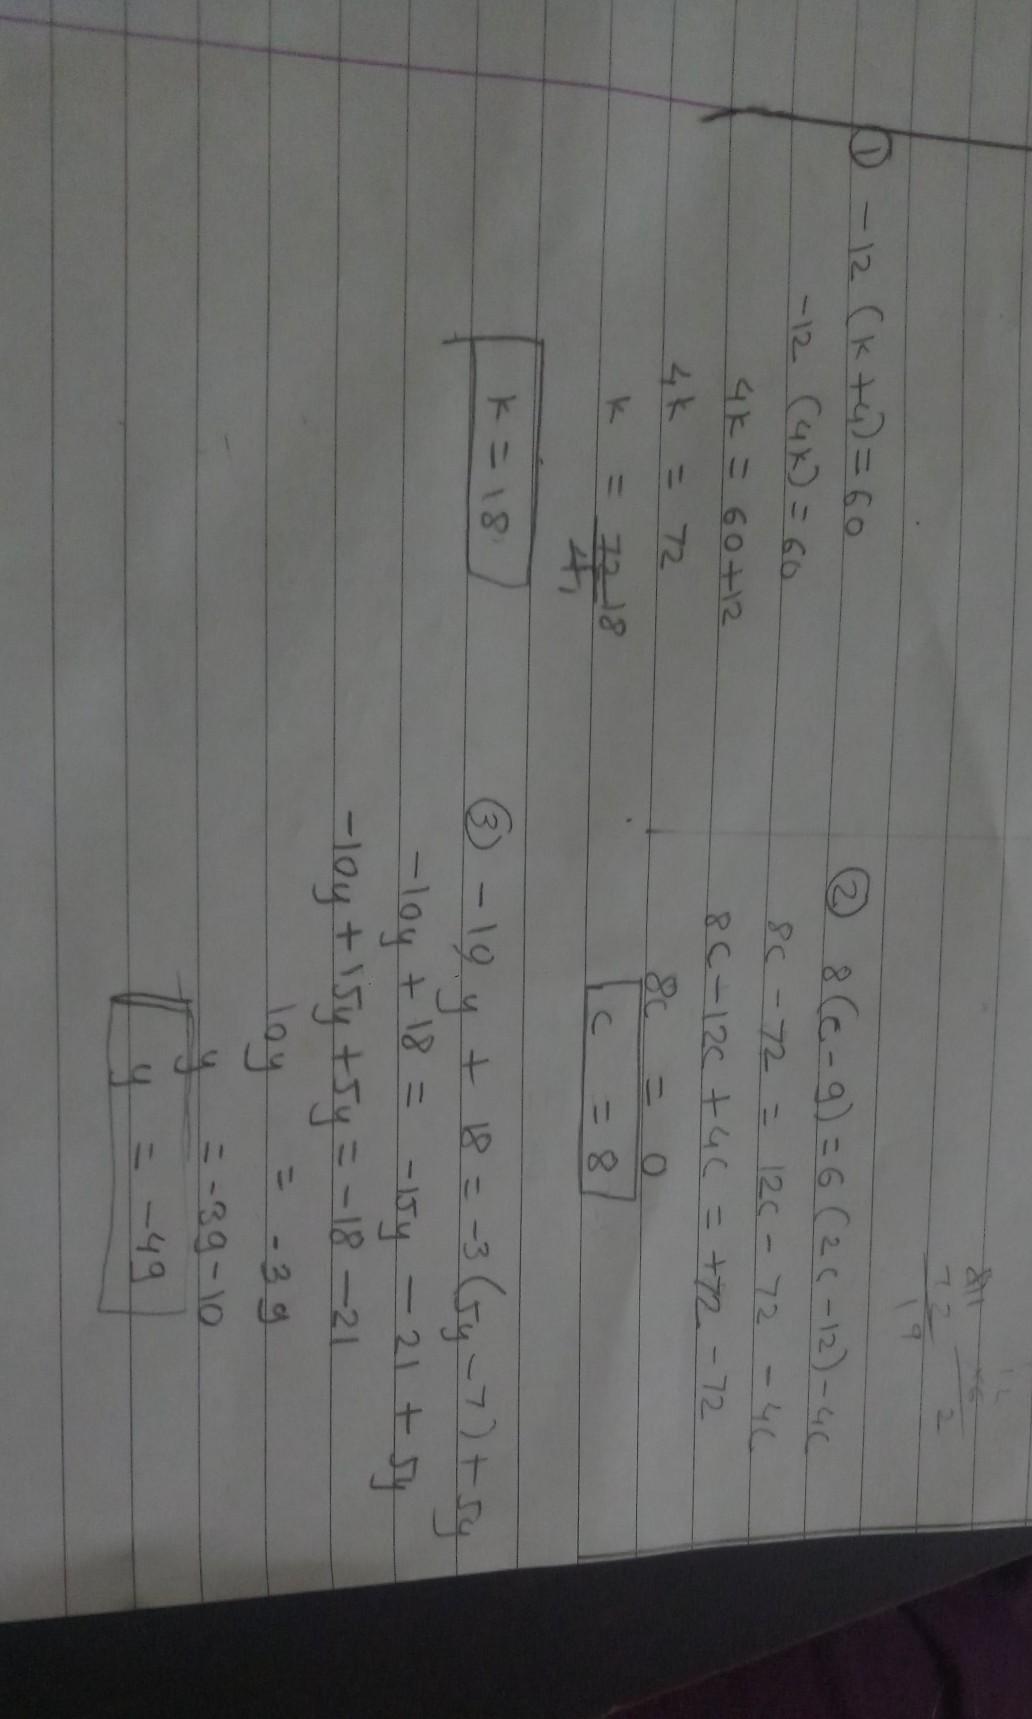 ① -12 (k+4) = 60
-12 (4k) = 60
4k = 60+12
4k = 72
k = 72 18
4 1
k = 18
② 8(c-9) = 6(2c-12)-4c
8c - 72 = 12c - 72 - 4c
8c - 12c + 4c = +72 - 72
8c = 0
c = 8
③ -10y + 18 = -3(5y-7)+5y
-10y + 18 = -15y - 21 + 5y
-10y + 15y + 5y = -18 - 21
10y = -39
y = -39-10
y = -49